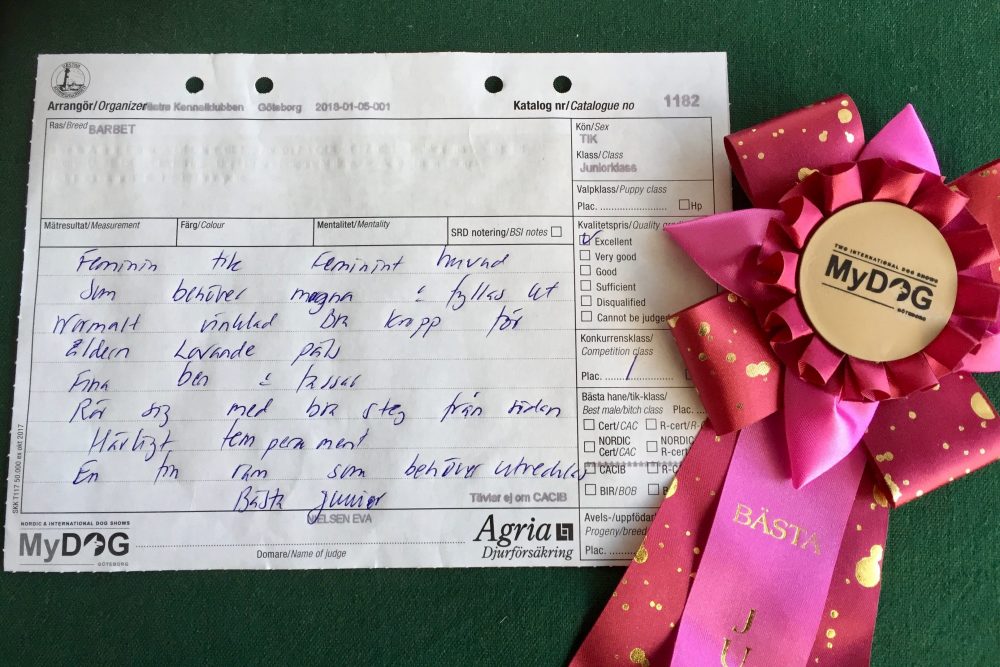 Arrangör/Organizer Västra Kennelklubben Göteborg 2018-01-05-001
Katalog nr/Catalogue no 1182
Ras/Breed BARBET
Kön/Sex
TIK
Klass/Class
Juniorklass
Valpklass/Puppy class
Plac. Hp
Mätresultat/Measurement Färg/Colour Mentalitet/Mentality SRD notering/BSI notes
Kvalitetspris/Quality
Excellent
Very good
Good
Sufficient
Disqualified
Cannot be judged
Konkurrensklass/
Competition class
Plac. 1
Bästa hane/tik-klass/
Best male/bitch class Plac.
Cert/CAC R-cert/R-
NORDIC Cert/CAC NORDIC R-
CACIB R-C
BIR/BOB
Avels-/uppfödar
Progeny/breed
Plac.
Feminin tik Feminint huvud
Som behöver mogna & fyllas ut
Normalt vinklad Bra kropp för
Åldern Lovande päls
Fina ben & tassar
Rör sig med bra steg från sidan
Härligt temperament
En fin ram som behöver utvecklas
Bästa junior
Tävlar ej om CACIB
NIELSEN EVA
Domare/Name of judge
SKK T117 50.000 ex okt 2017
NORDIC & INTERNATIONAL DOG SHOWS
MyDOG
GÖTEBORG
Agria
Djurförsäkring
TWO INTERNATIONAL DOG SHOWS
MyDOG
GÖTEBORG
BÄSTA
J
U